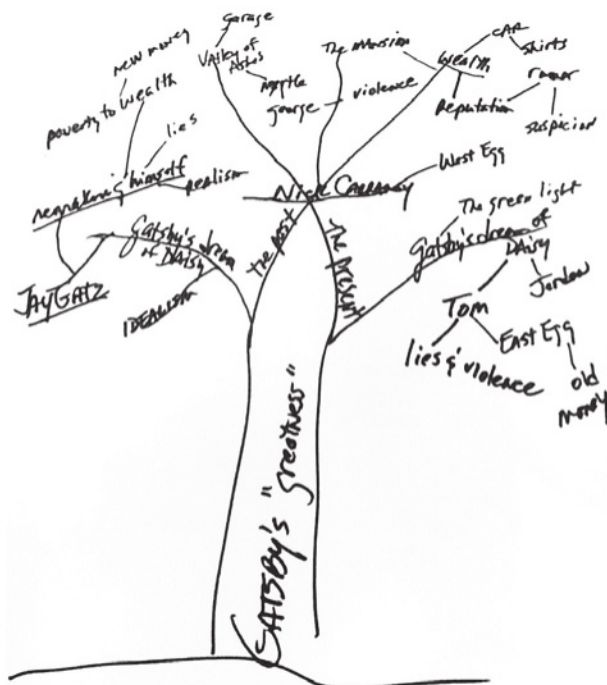 Garage
Valley of
Ashes
Myrtle
The Mansion
george
violence
CAR
shirts
Wealth
rumor
Reputation
suspicion
new money
poverty to wealth
lies
remaking himself
Realism
NICK CARRAWAY
West Egg
Gatsby's dream
of DAISY
IDEALISM
JAY GATZ
The past
The present
The green light
Gatsby's dream of
DAisy
Jordan
Tom
East Egg
lies & violence
old
money
GATSBY's "greatness"